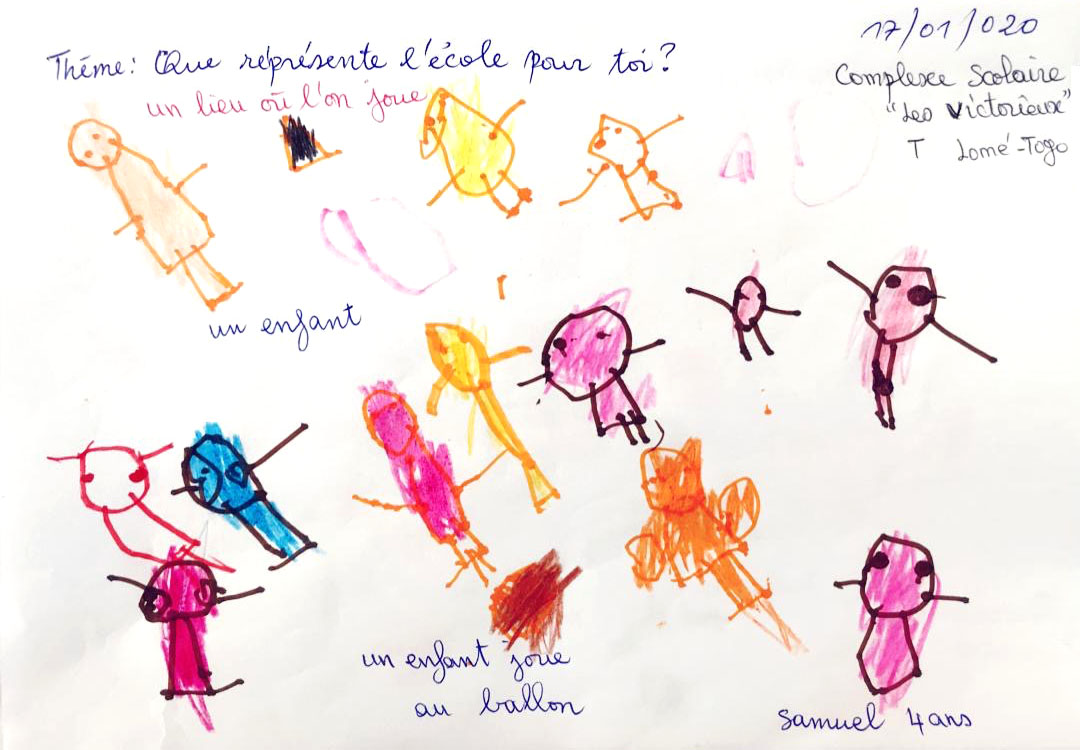 17/01/020
Thème: Que représente l'école pour toi?
un lieu où l'on joue
Complexe Scolaire
"Les Victorieux"
T Lomé-Togo
un enfant
un enfant joue
au ballon
Samuel 4 ans